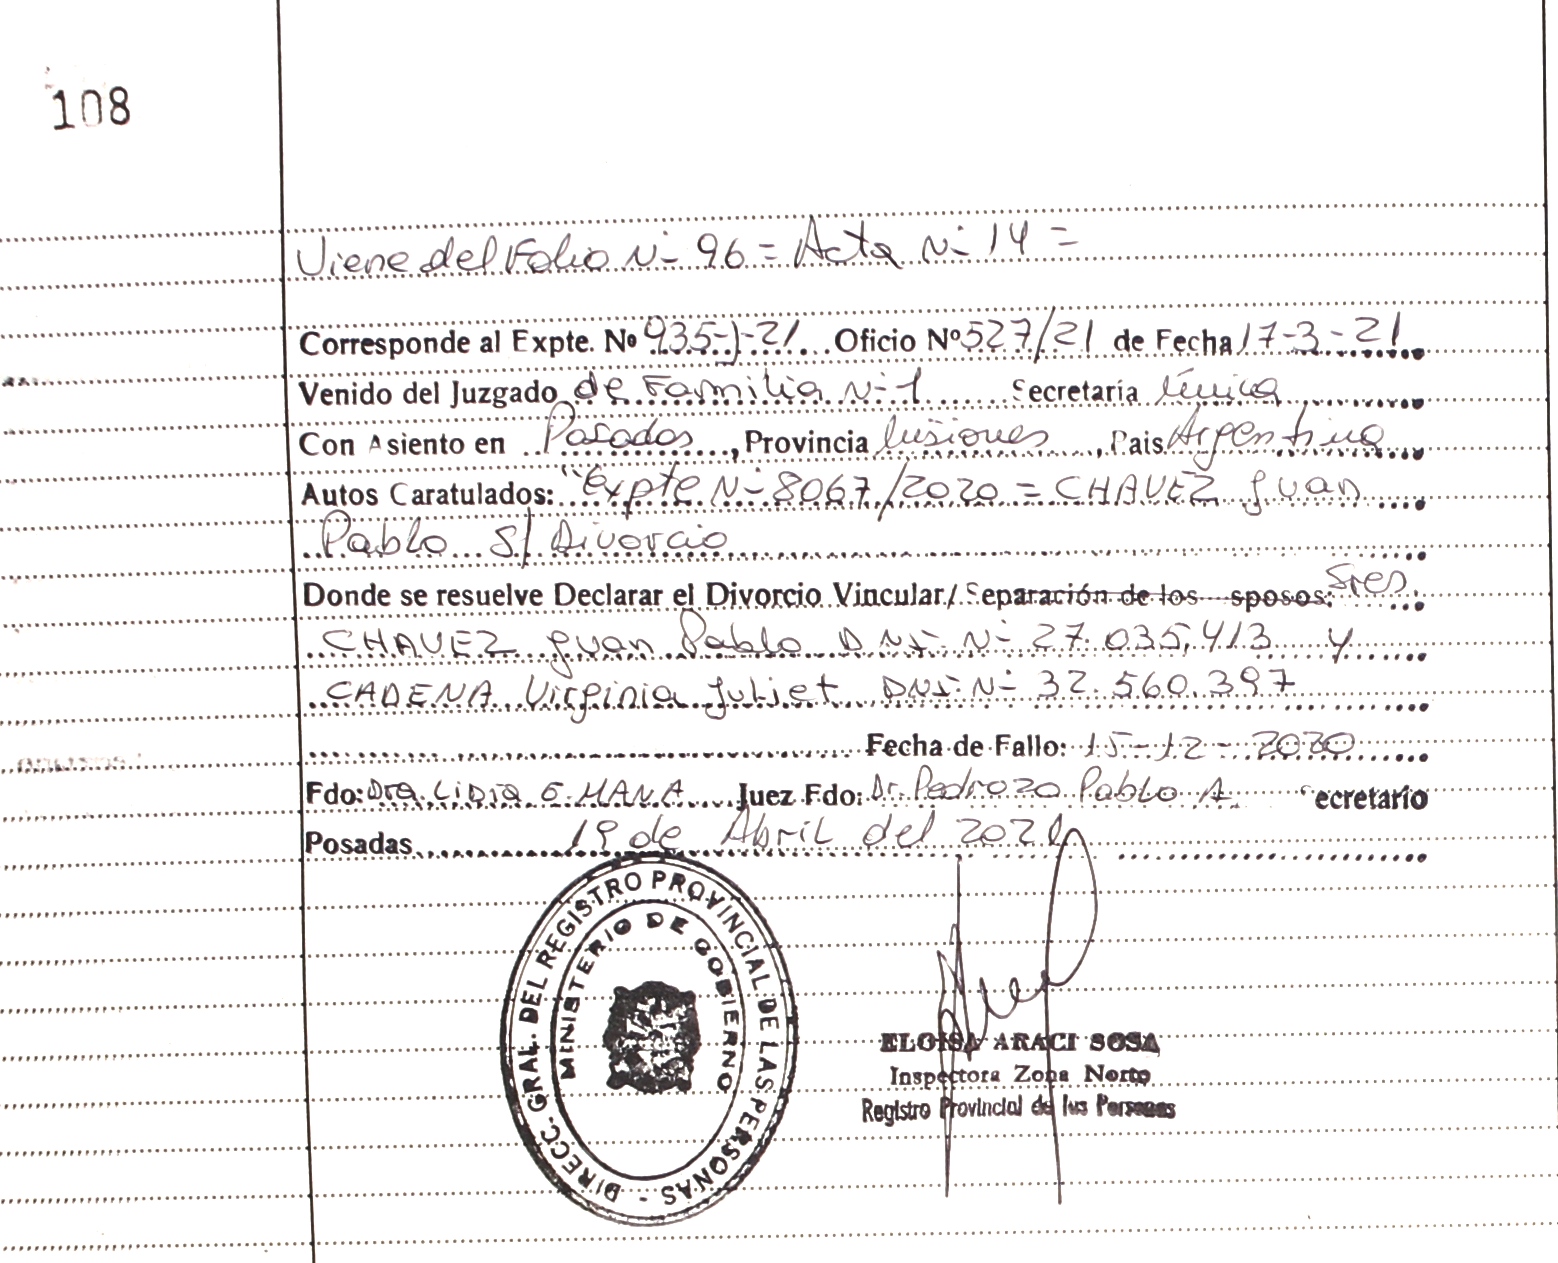 108
Viene del Folio N- 96 = Acta N- 14 =
Corresponde al Expte. Nº 935-J-21 Oficio Nº 527/21 de Fecha 17-3-21
Venido del Juzgado de Familia N-1 Secretaría Única
Con Asiento en Posadas, Provincia Misiones, Pais Argentina
Autos Caratulados: "Expte N- 8067/2020 = CHAVEZ Juan
Pablo S/ Divorcio
Donde se resuelve Declarar el Divorcio Vincular/ Separación de los sposos: Sres.
CHAVEZ Juan Pablo DNI N- 27.035.413 y
CADENA Virginia Juliet DNI N- 32.560.397
Fecha de Fallo: 15-12-2020
Fdo: Dra. Lidia E. MANA Juez Fdo: Dr. Pedrozo Pablo A. ecretario
Posadas 19 de Abril del 2021
DIRECC. GRAL. DEL REGISTRO PROVINCIAL DE LAS PERSONAS -
MINISTERIO DE GOBIERNO
ELOISA ARACI SOSA
Inspectora Zona Norte
Registro Provincial de las Personas